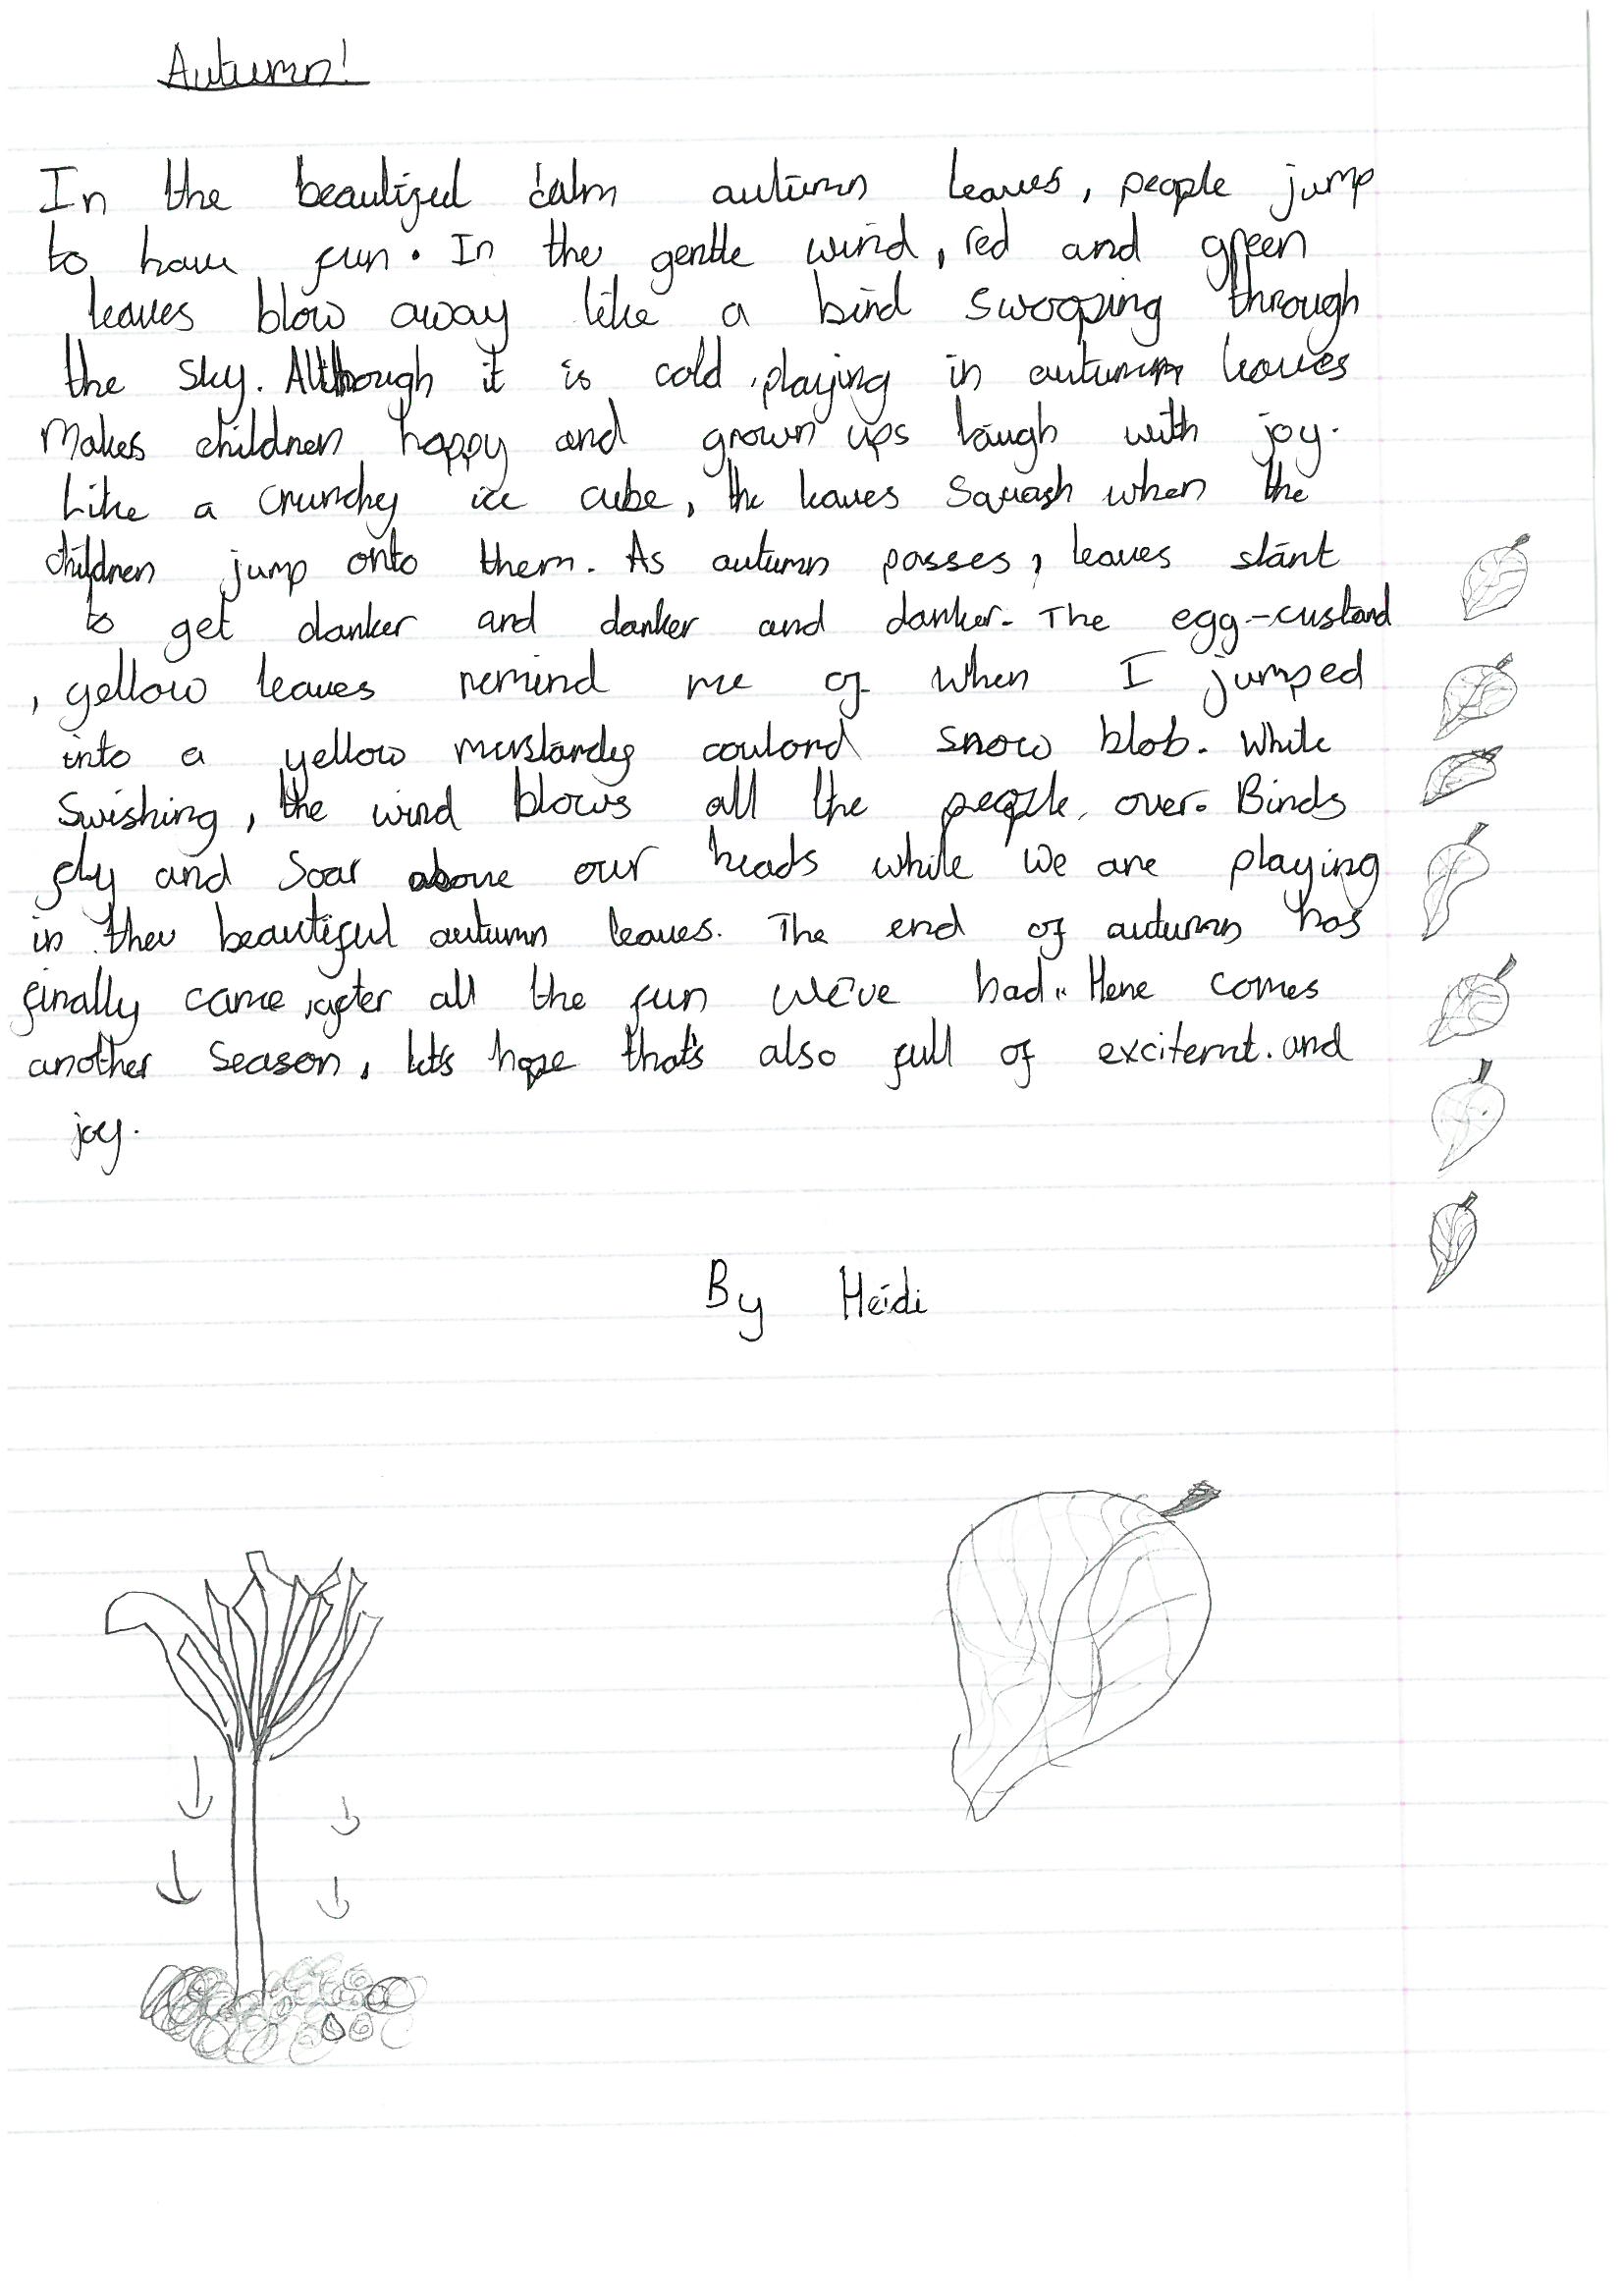 Autumn!
In the beautiful calm autumn leaves, people jump
to have fun. In the gentle wind, red and green
leaves blow away like a bird swooping through
the sky. Although it is cold, playing in autumn leaves
Makes children happy and grown ups laugh with joy.
Like a crunchy ice cube, the leaves squash when the
children jump onto them. As autumn passes, leaves start
to get darker and darker and darker. The egg-custard
, yellow leaves remind me of when I jumped
into a yellow mustardy coulord snow blob. While
Swishing, the wind blows all the people over. Birds
fly and soar above our heads while we are playing
in the beautiful autumn leaves. The end of autumn has
finally came, after all the fun we've had. Here comes
another season, let's hope that's also full of excitemnt. and
joy.
By Heidi